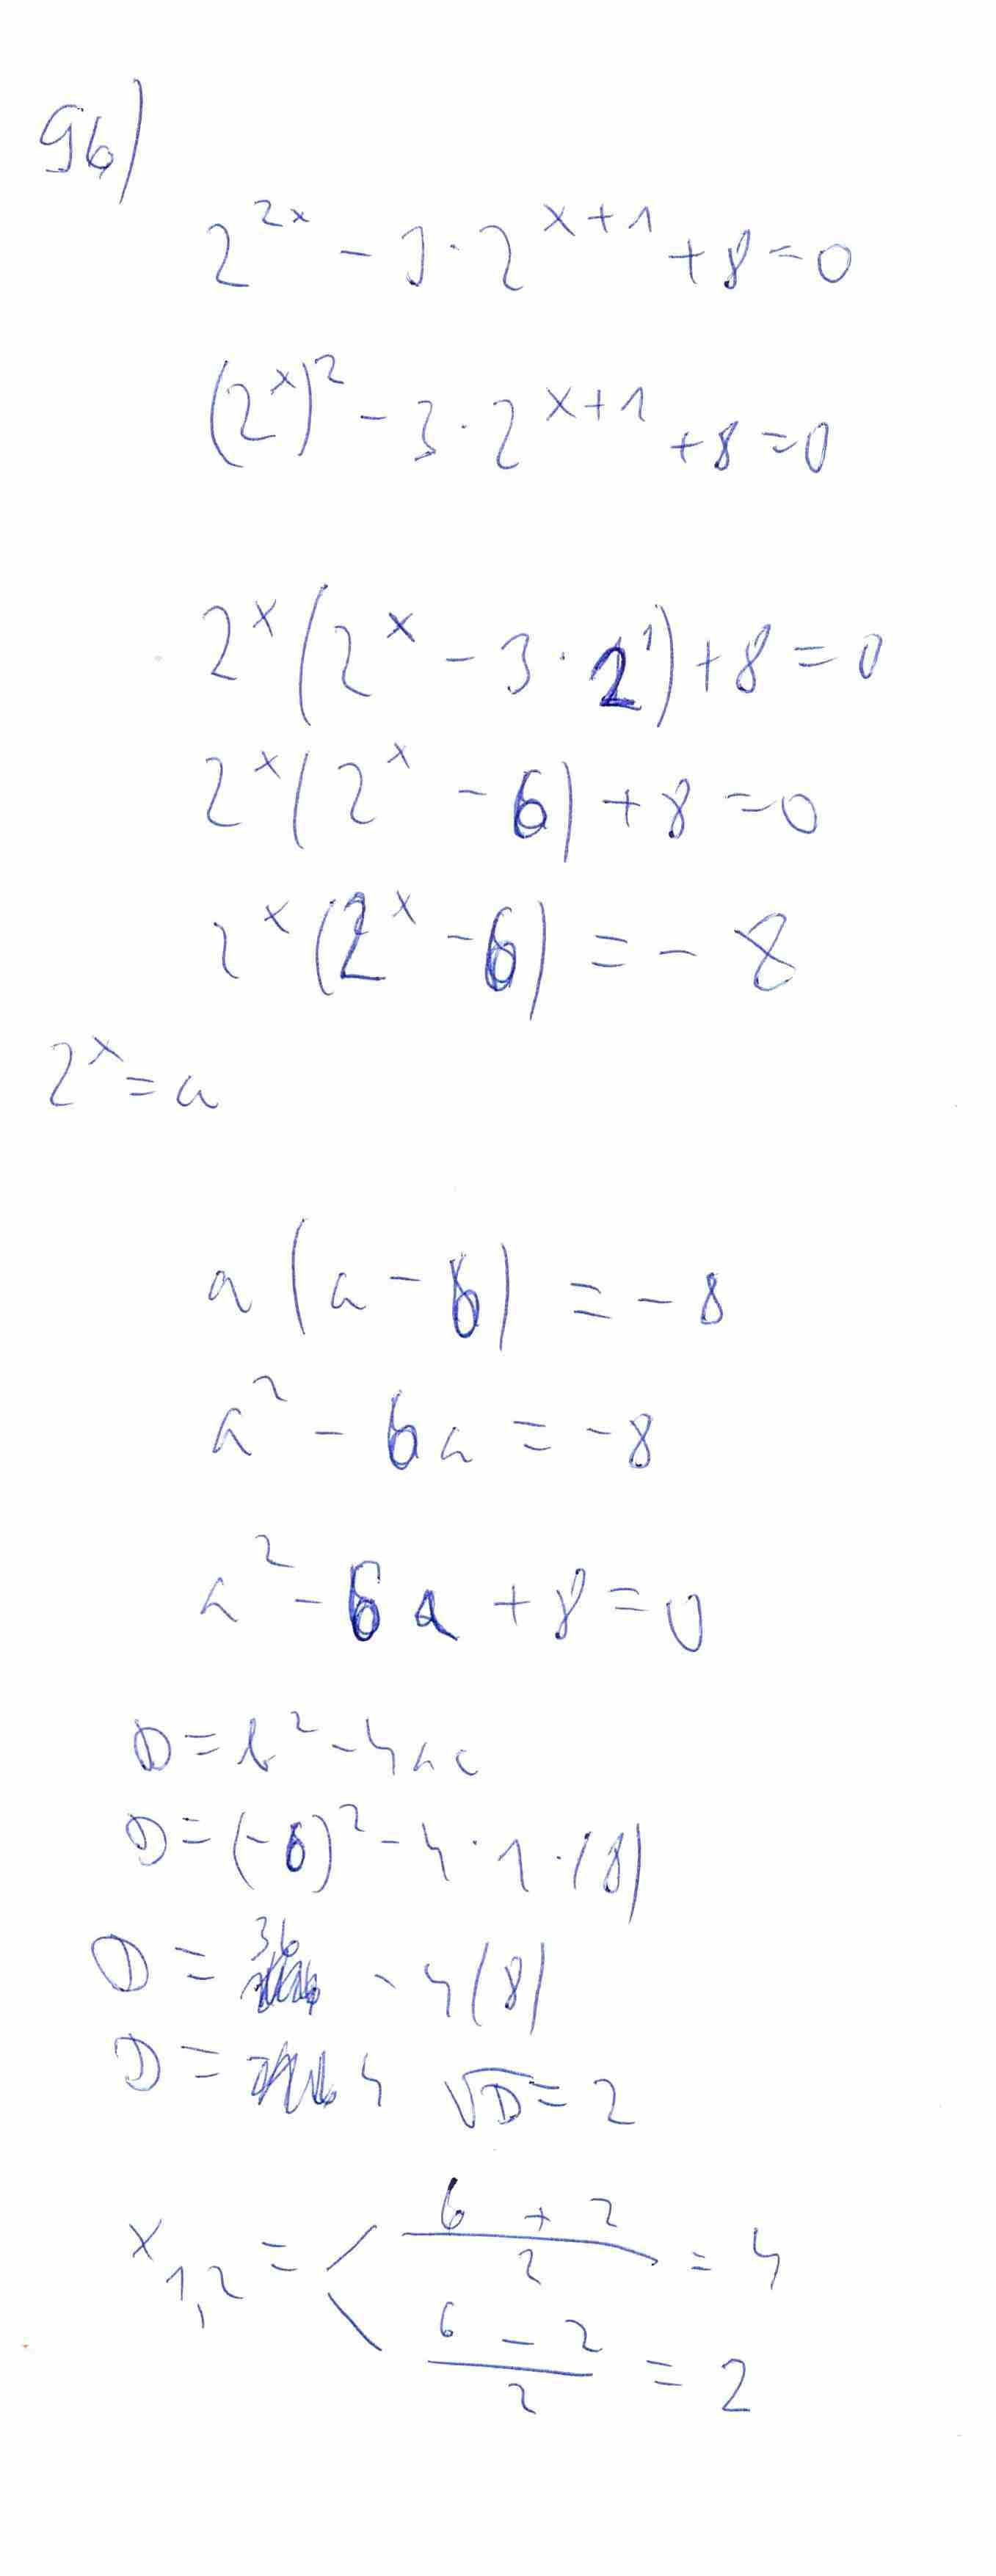 9b)
2^{2x} - 3 · 2^{x+1} + 8 = 0
(2^x)^2 - 3 · 2^{x+1} + 8 = 0
2^x (2^x - 3 · 2^1) + 8 = 0
2^x (2^x - 6) + 8 = 0
2^x (2^x - 6) = - 8
2^x = a
a (a - 6) = - 8
a^2 - 6a = - 8
a^2 - 6a + 8 = 0
D = b^2 - 4ac
D = (-6)^2 - 4 · 1 · (8)
D = 36 - 4(8)
D = 4 √D = 2
x_{1,2} = < \frac{6 + 2}{2} = 4
\frac{6 - 2}{2} = 2